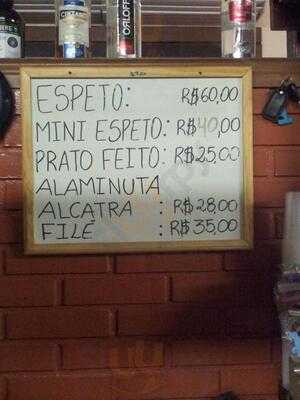 ORLOFF
ESPETO: R$60,00
MINI ESPETO: R$40,00
PRATO FEITO: R$25,00
ALAMINUTA
ALCATRA : R$28,00
FILÉ : R$35,00